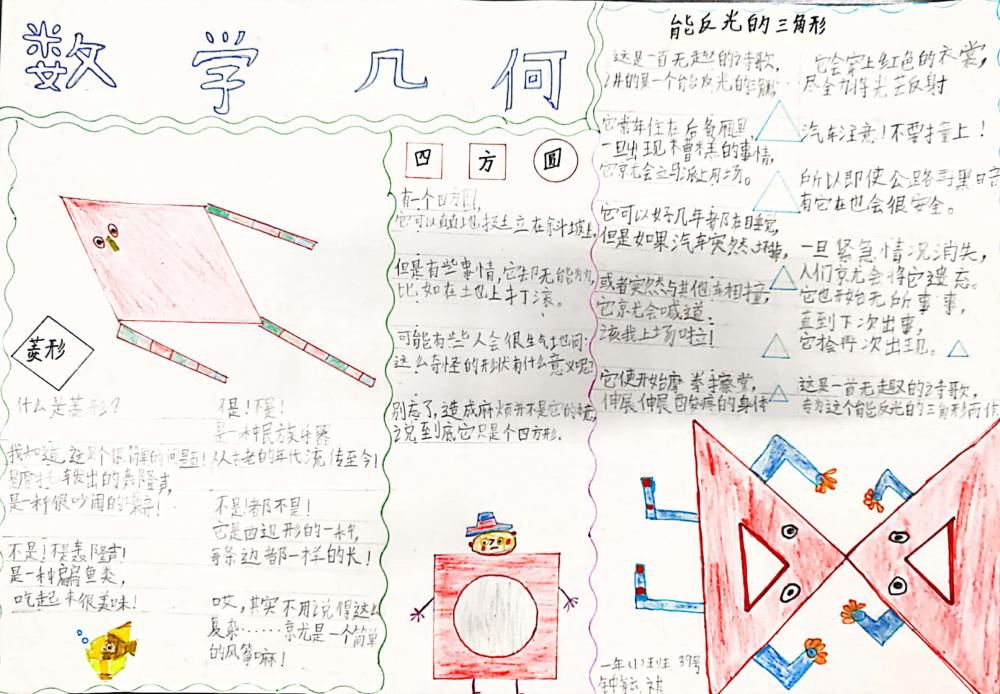 数学几何
菱形
什么是菱形？
我知道,这是个很简单的问题!
是摩托车发出的轰隆声,
是一种很吵闹的噪音!
不是!不是轰隆声!
是一种扁鱼类,
吃起来很美味!
不是!
是一种民族乐器
从古老的年代流传至今!
不是!都不是!
它是四边形的一种,
每条边都一样的长!
哎,其实不用说得这么
复杂……京尤是一个简单
的风筝嘛!
四 方 圆
有一个四方圆,
它可以直直地挺立在斜坡上,
但是有些事情,它却无能为力,
比如在土也上打滚。
可能有些人会很生气地问:
这么奇怪的形状有什么意义呢?
别忘了,造成麻烦并不是它的特意,
说到底它只是个四方形.
能反光的三角形
这是一首无趣的诗歌,
讲的是一个能反光的三角形…
它常年住在后备厢里,
一旦出现不曹糕的事情,
它京尤会立马派上用场。
它可以好几年都在睡觉,
但是如果汽车突然坏掉,
或者突然与其他车相撞,
它京尤会喊道:
该我上场啦!
它便开始摩拳擦掌,
伸展伸展酸疼的身体
它会穿上红色的衣裳,
尽全力将光芒反射
汽车注意!不要撞上!
所以即使公路再黑暗
有它在也会很安全。
一旦紧急情况消失,
人们京尤会将它遗忘。
它也开始无所事事,
直到下次出事,
它才会再次出现。
这是一首无趣的诗歌,
专为这个能反光的三角形而作
一年(1)班 39号